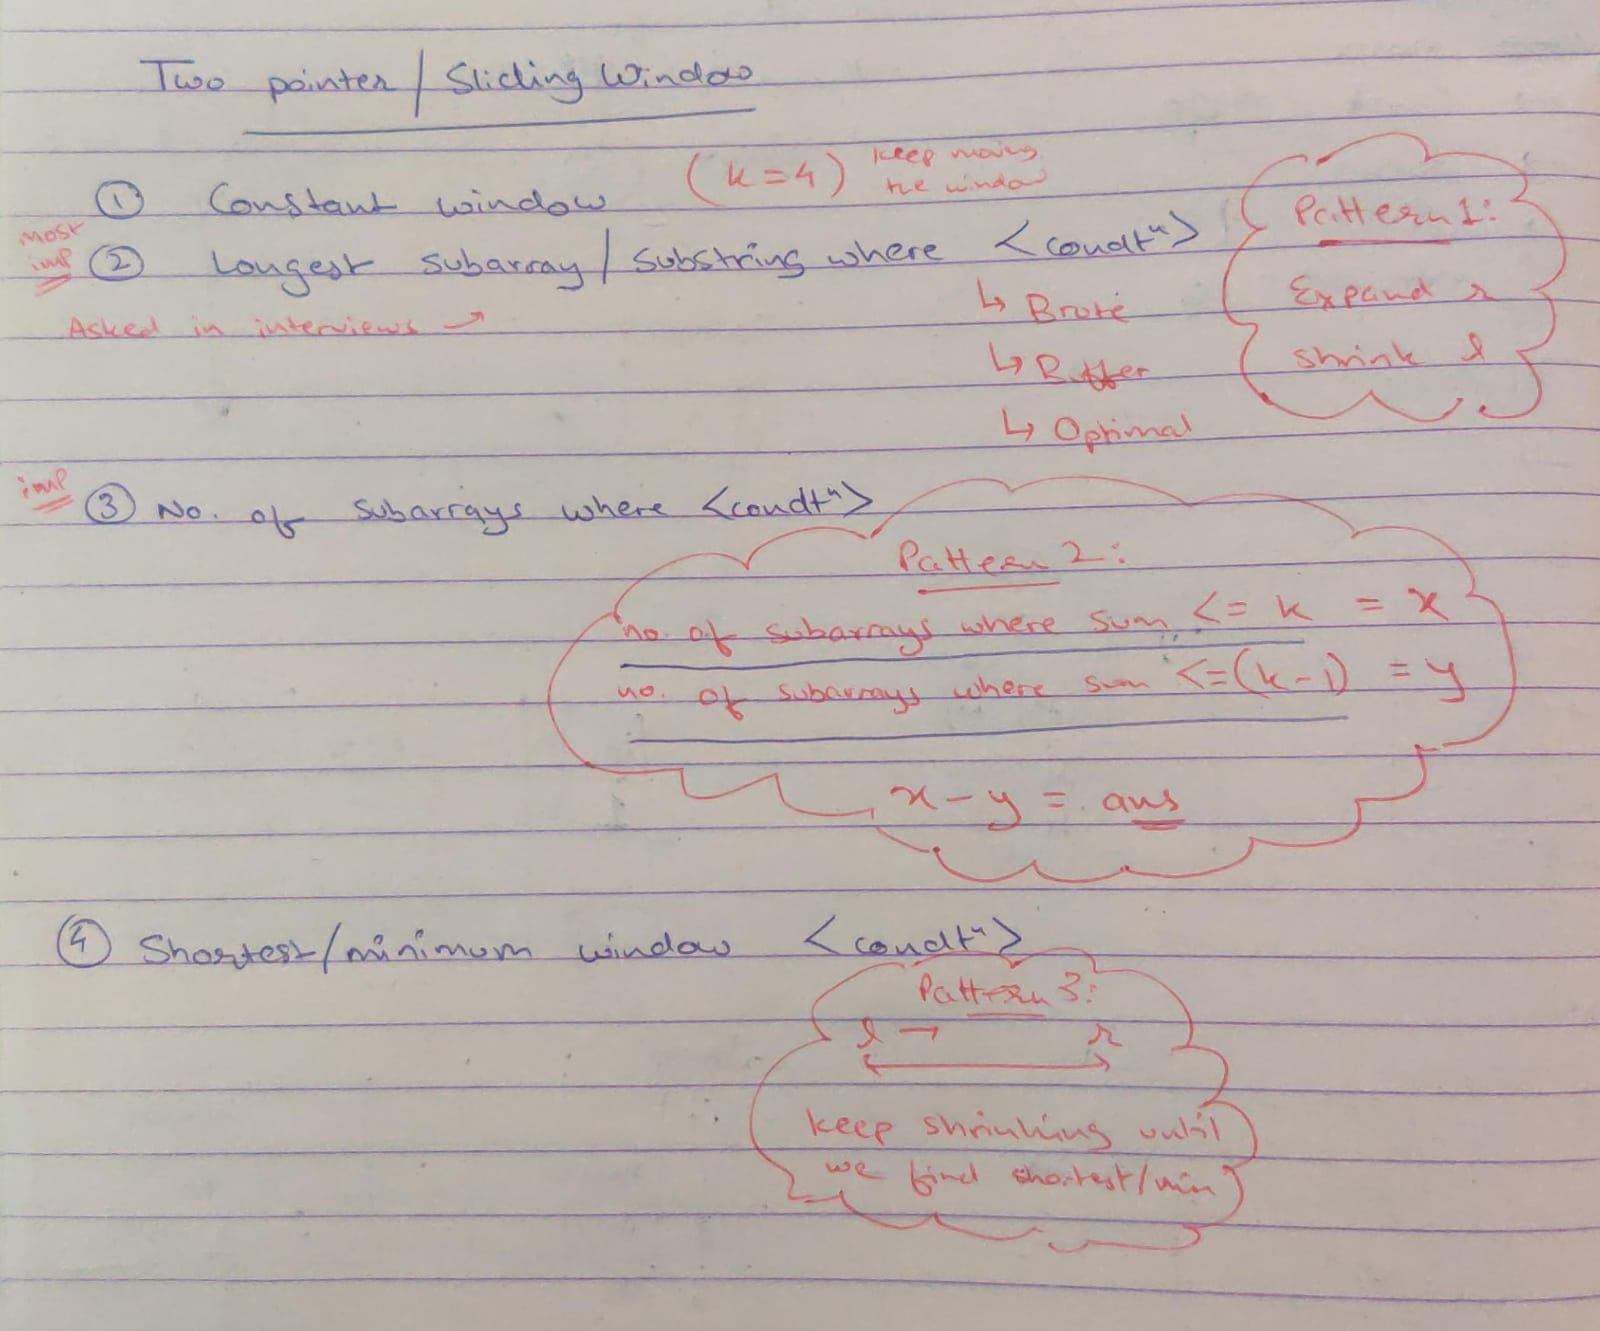 Two pointer / Sliding Window
① Constant window (k=4) keep moving the window
most imp ② Longest subarray / substring where <condtⁿ>
Asked in interviews →
↳ Brute
↳ Better
↳ Optimal
Pattern 1:
Expand r
shrink l
imp ③ No. of subarrays where <condtⁿ>
Pattern 2:
no. of subarrays where sum <= k = x
no. of subarrays where sum <=(k-1) = y
x - y = ans
④ Shortest/minimum window <condtⁿ>
Pattern 3:
l → r
keep shrinking until
we find shortest/min